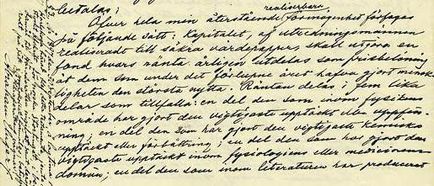 betalas;
realiserbara
Öfver hela min återstående förmögenhet förfogas
på följande sätt: Kapitalet, af utredningsmännen
realiserade till säkra värdepapper, skall utgöra en
fond hvars ränta årligen utdelas som prisbelöning
åt dem som under det förlupne året hafva gjort mensk-
ligheten den största nytta. Räntan delas i fem lika
delar som tillfalla: en del den som inom fysikens
område har gjort den vigtigaste upptäckt eller uppfin-
ning; en del den som har gjort den vigtigaste kemiska
upptäckt eller förbättring; en del den som har gjort den
vigtigaste upptäckt inom fysiologiens eller medicinens
domän; en del den som inom literaturen har producerat